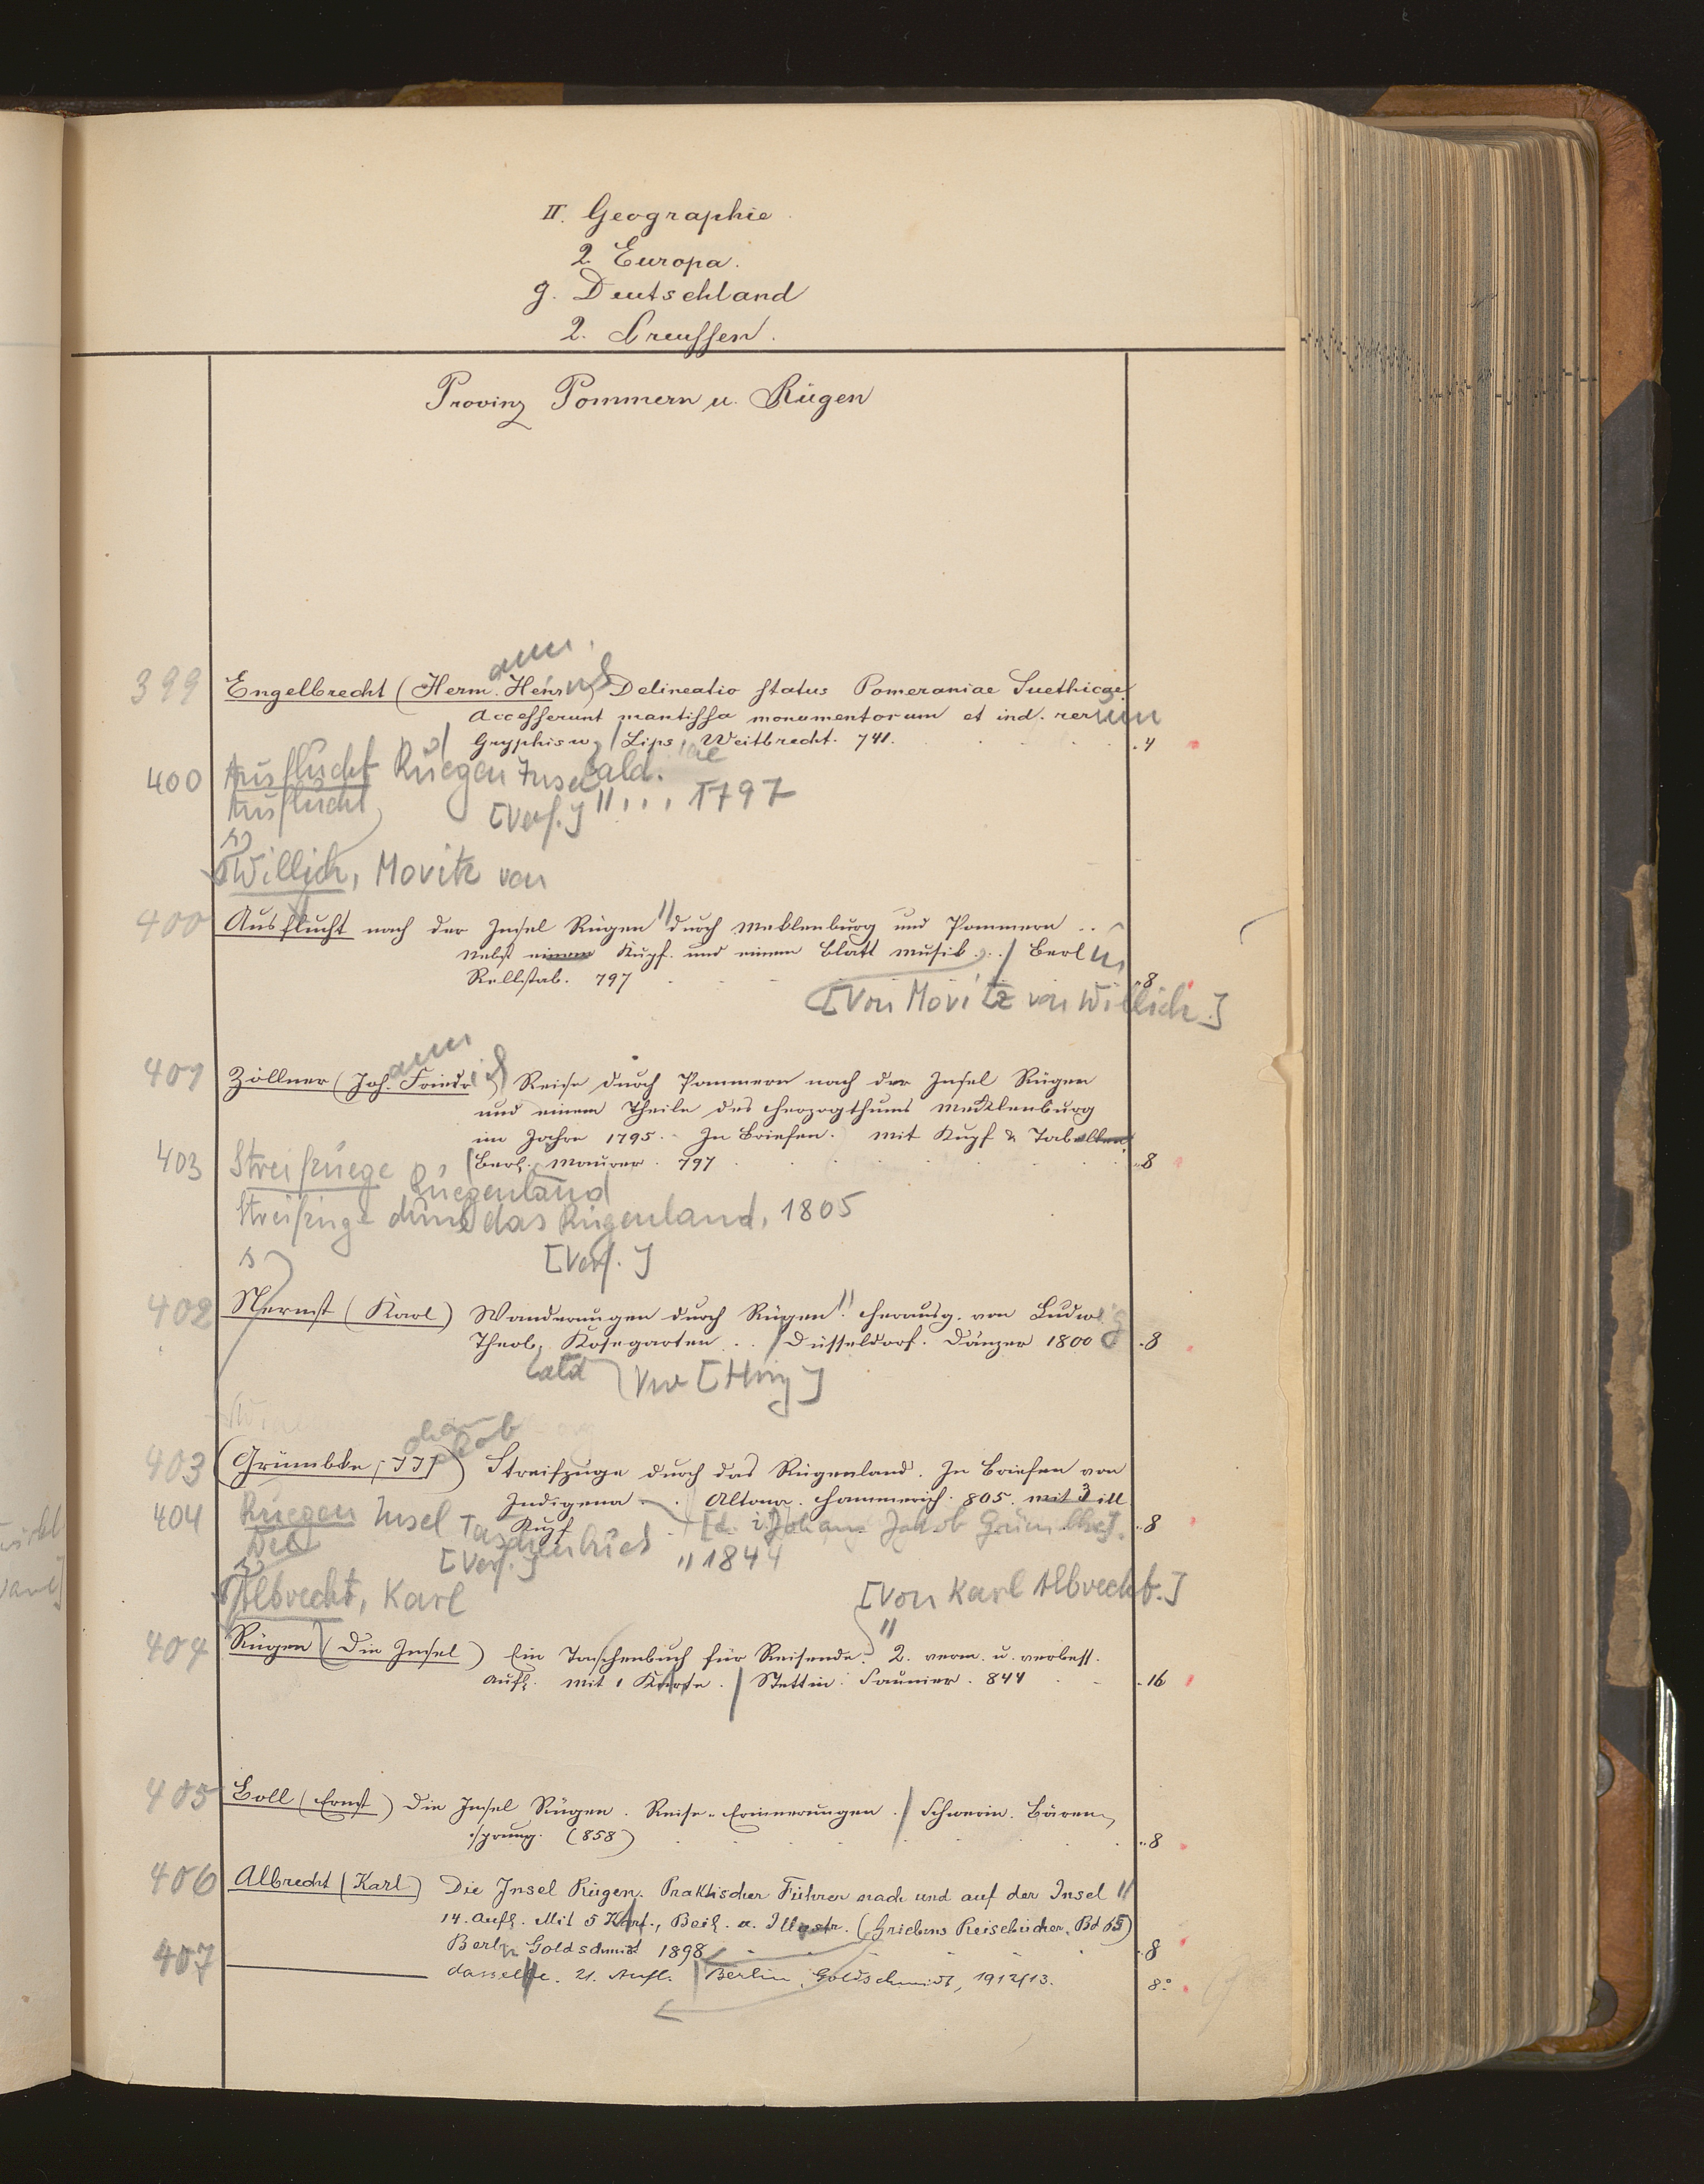 II. Geographie
2. Europa.
g. Deutschland
2. Preussen.
Provinz Pommern u. Rügen
ann
399 Engelbrecht (Herm. Heinrich) Delineatio status Pomeraniae Suethicae.
Accesserunt mantissa monumentorum et ind. rerum
Gryphisw. / Lips, Weitbrecht. 741. 4
400 Ausflucht Ruegen Insel
Ausflucht [Verf.] 1797
s
Willich, Moritz von
400 Ausflucht nach der Insel Rügen durch Meklenburg und Pommern ..
Nebst einem Kupf. und einem Blatt Musik .. / Berlin
Rellstab. 797 8
[Von Moritz von Willich.]
ann
401 Zöllner (Joh. Friedrich) Reise durch Pommern nach der Insel Rügen
und einem Theile des Herzogthums Mecklenburg
im Jahre 1795. In Briefen. Mit Kupf & Tabellen.
Berl. Maurer. 797 8
403 Streifzuege Ruegenland
Streifzüge durch das Rügenland, 1805
s [Verf.]
402 Nernst (Karl) Wanderungen durch Rügen. Herausg. von Ludwig
Theob. Kosegarten .. / Düsseldorf. Dänzer 1800 8
[Hrsg]
403 (Grümbke, J J) Streifzüge durch das Rügenland. In Briefen von
Indigena. Altona. Hammerich. 805. mit 3 ill
Kupf [d. i. Johann Jakob Grümbke]. 8
404 Ruegen Insel Taschenbuch
Die [Verf.] 1844
s
Albrecht, Karl
[Von Karl Albrecht.]
404 Rügen (Die Insel) Ein Taschenbuch für Reisende. 2. verm. u. verbess.
Aufl. Mit 1 Karte. / Stettin. Saunier. 844 16
405 Boll (Ernst) Die Insel Rügen. Reise-Erinnerungen. / Schwerin. Bären-
sprung. (858) 8
406 Albrecht (Karl) Die Insel Rügen. Praktischer Führer nach und auf der Insel
14. Aufl. Mit 5 Kart., Beil. u. Illustr. (Griebens Reisebücher. Bd 65)
Berlin Goldschmidt 1898 8
407 ——— dasselbe. 21. Aufl. | Berlin, Goldschmidt, 1912/13. 8°